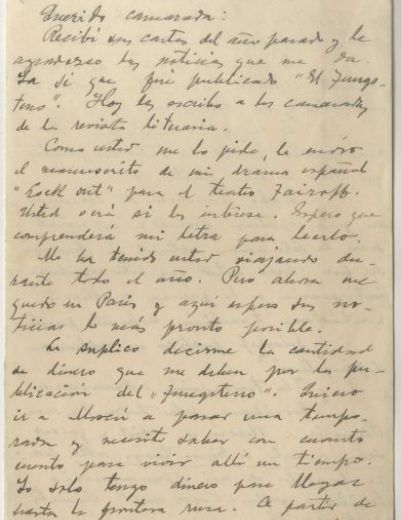 Querido camarada:
Recibí sus cartas del año pasado y le
agradezco las noticias que me da.
Ya sé que fué publicado "El Tungs-
teno". Hoy les escribo a los camaradas
de la revista literaria.
Como usted me lo pide, le envío
el manuscrito de mi drama español
"Lock out" para el teatro Taïroff.
Usted verá si les interesa. Espero que
comprenderá mi letra para leerlo.
Me ha tenido usted viajando du-
rante todo el año. Pero ahora me
quedo en París y aquí espero sus no-
ticias lo más pronto posible.
Le suplico decirme la cantidad
de dinero que me deben por la pu-
blicación del "Tungsteno". Quiero
ir a Moscú a pasar una tempo-
rada y necesito saber con cuanto
cuento para vivir allí un tiempo.
Yo solo tengo dinero para llegar
hasta la frontera rusa. A partir de